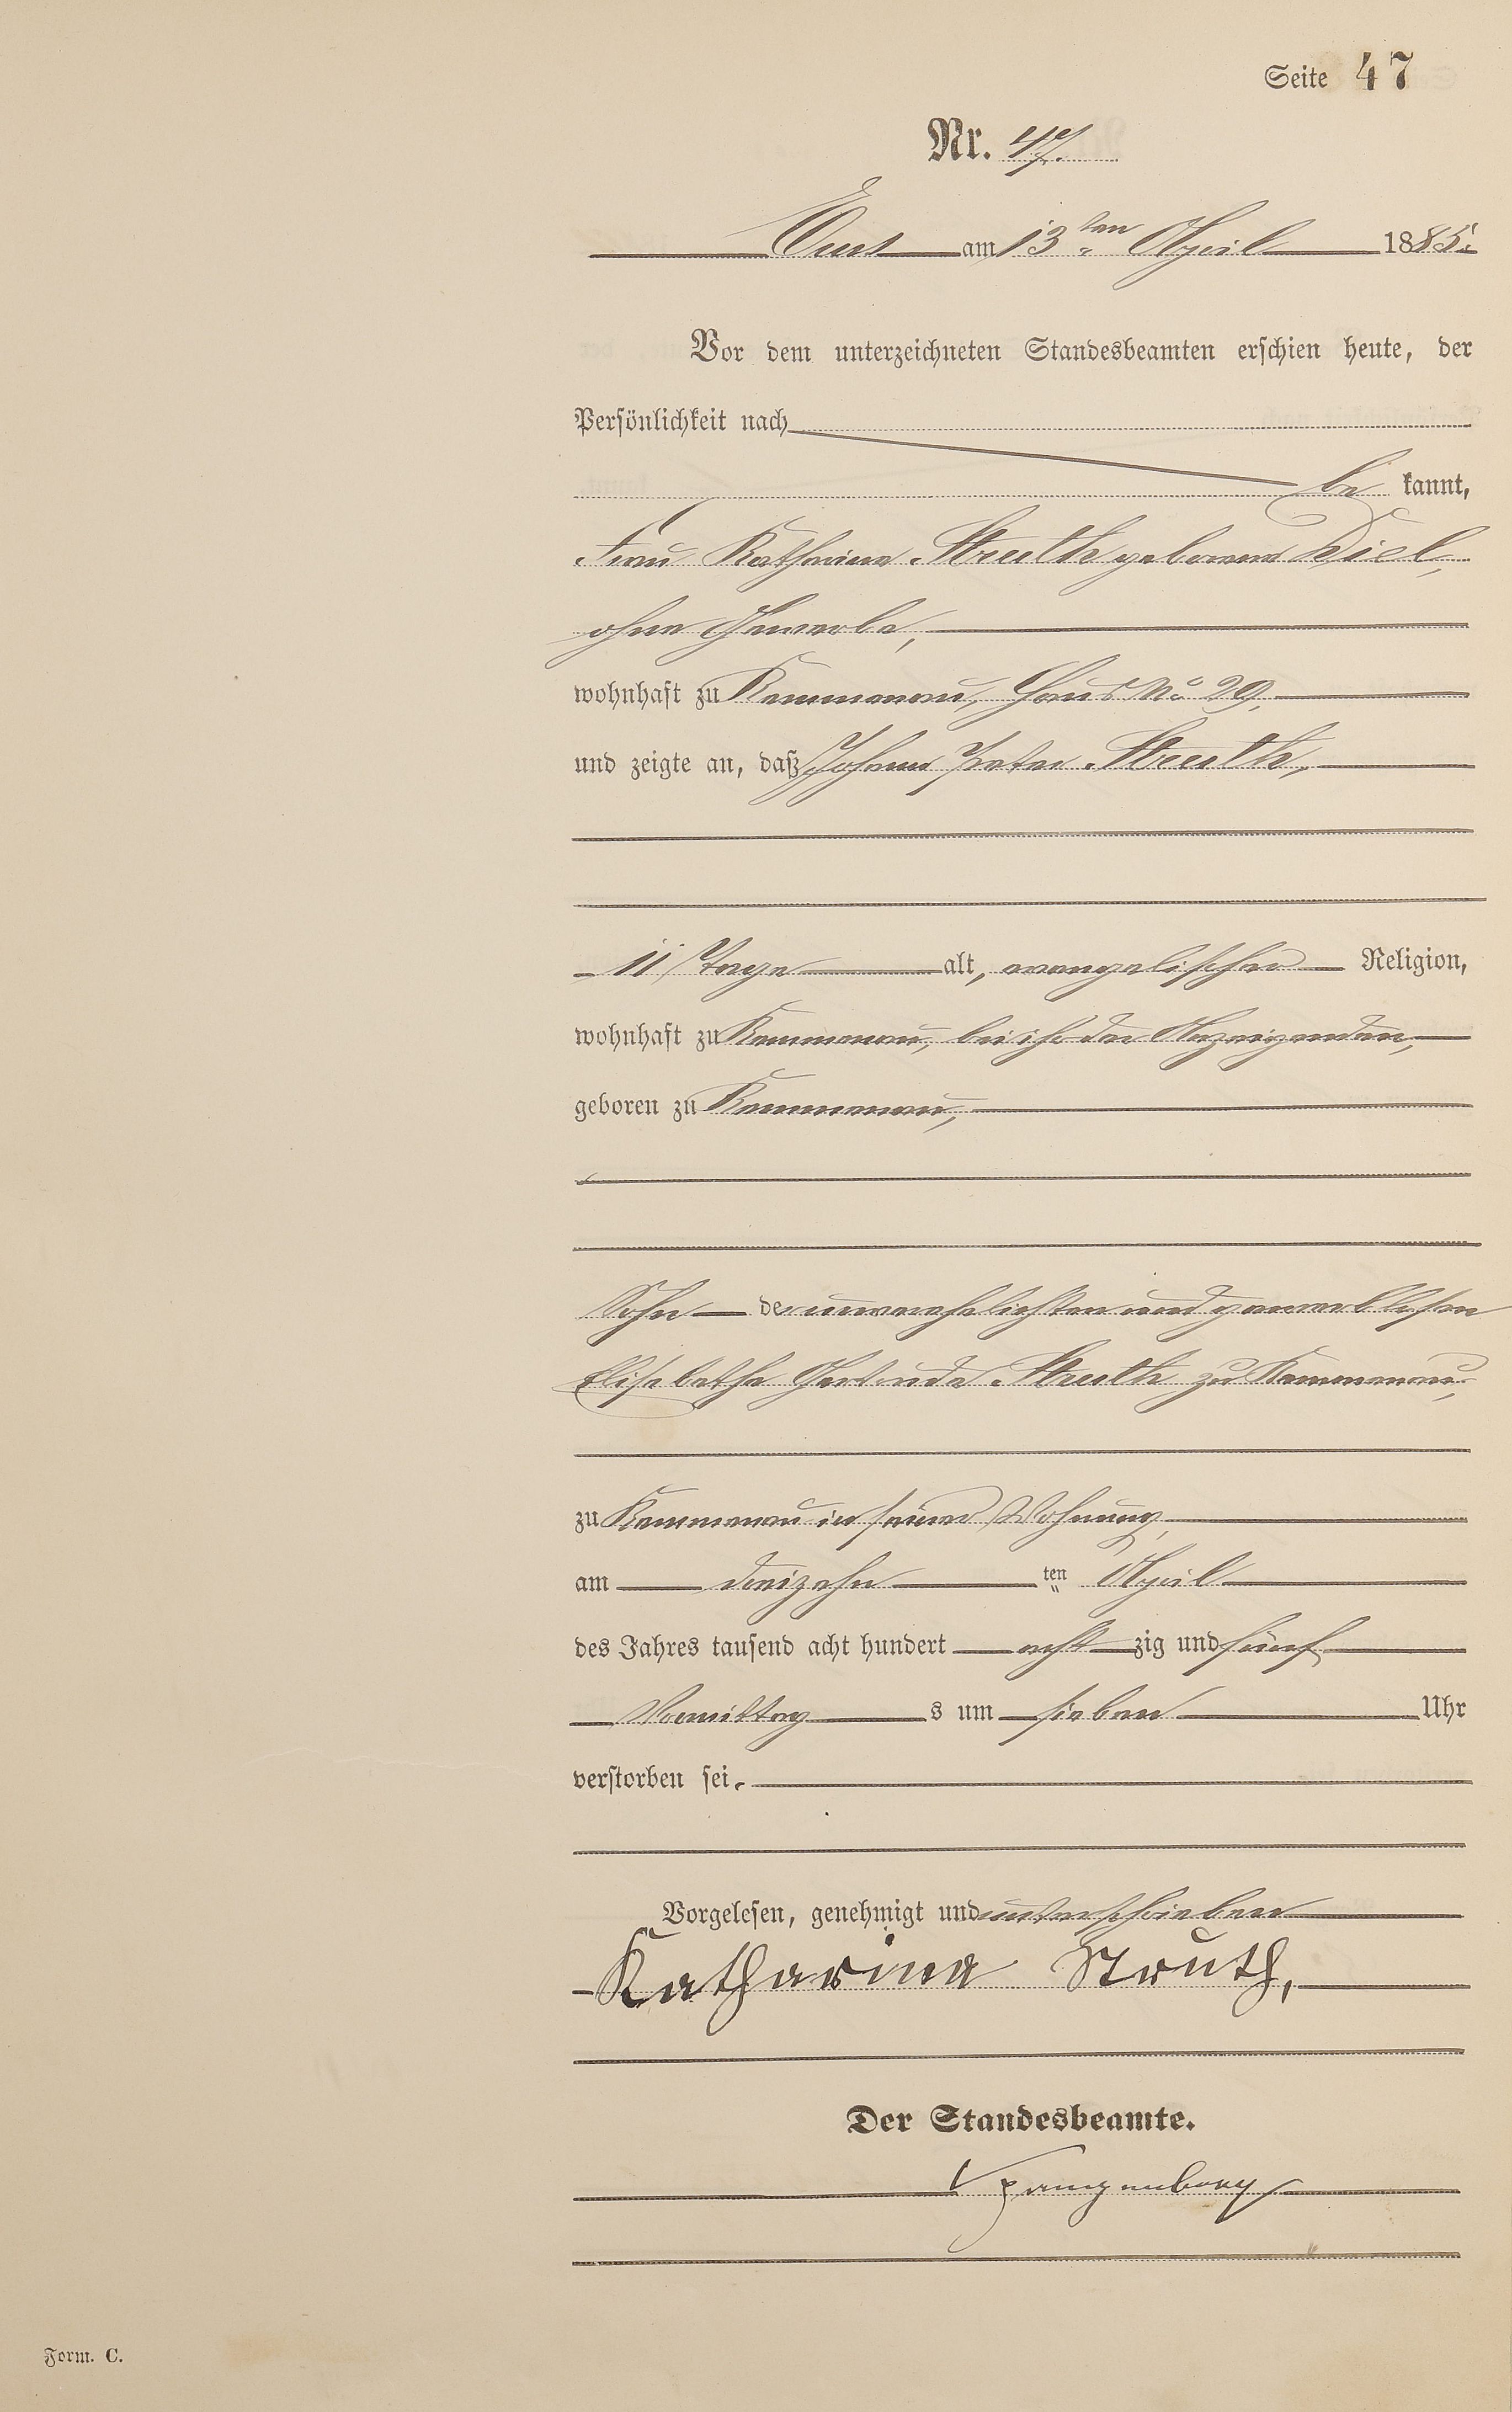 Seite 47
Nr. 47.
Ems am 13ten April 1885.
Vor dem unterzeichneten Standesbeamten erschien heute, der
Persönlichkeit nach
be kannt,
Frau Katharina Struth geborene Diel,
ohne Gewerbe,
wohnhaft zu Kemmenau, Haus No 29,
und zeigte an, daß Johann Peter Struth,
11 Tage alt, evangelischer Religion,
wohnhaft zu Kemmenau, bei ihr der Anzeigenden,
geboren zu Kemmenau,
Sohn der unverehelichten und gewerblosen
Elisabethe Gertrude Struth zu Kemmenau,
zu Kemmenau in seiner Wohnung,
am dreizehn ten April
des Jahres tausend acht hundert acht zig und fünf
Vormittag s um sieben Uhr
verstorben sei.
Vorgelesen, genehmigt und unterschrieben
Katharina Struth,
Der Standesbeamte.
Spangenberg
Form. C.